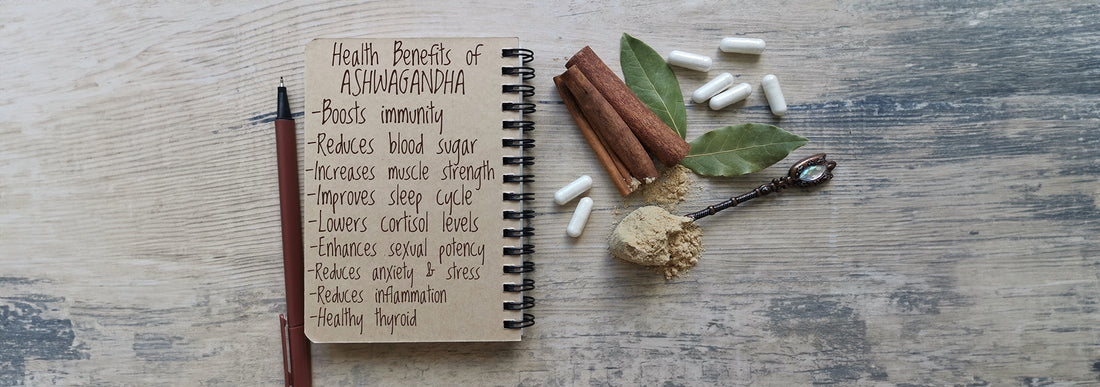 Health Benefits of
ASHWAGANDHA
-Boosts immunity
-Reduces blood sugar
-Increases muscle strength
-Improves sleep cycle
-Lowers cortisol levels
-Enhances sexual potency
-Reduces anxiety & stress
-Reduces inflammation
-Healthy thyroid